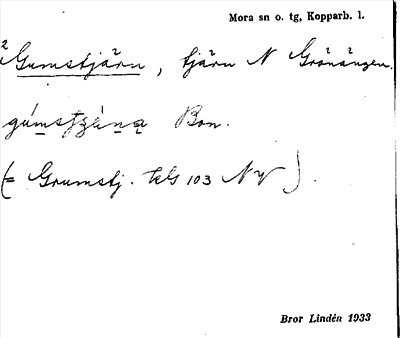 Mora sn o. tg, Kopparb. l.
2 Gumstjärn, tjärn N Grönängen.
Bon.
(= Grumstj. kbl 103 NV).
Bror Lindén 1933